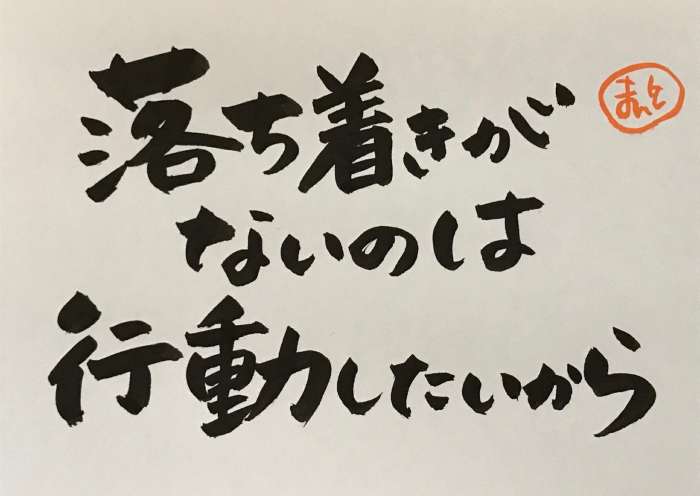 落ち着きが
ないのは
行動したいから